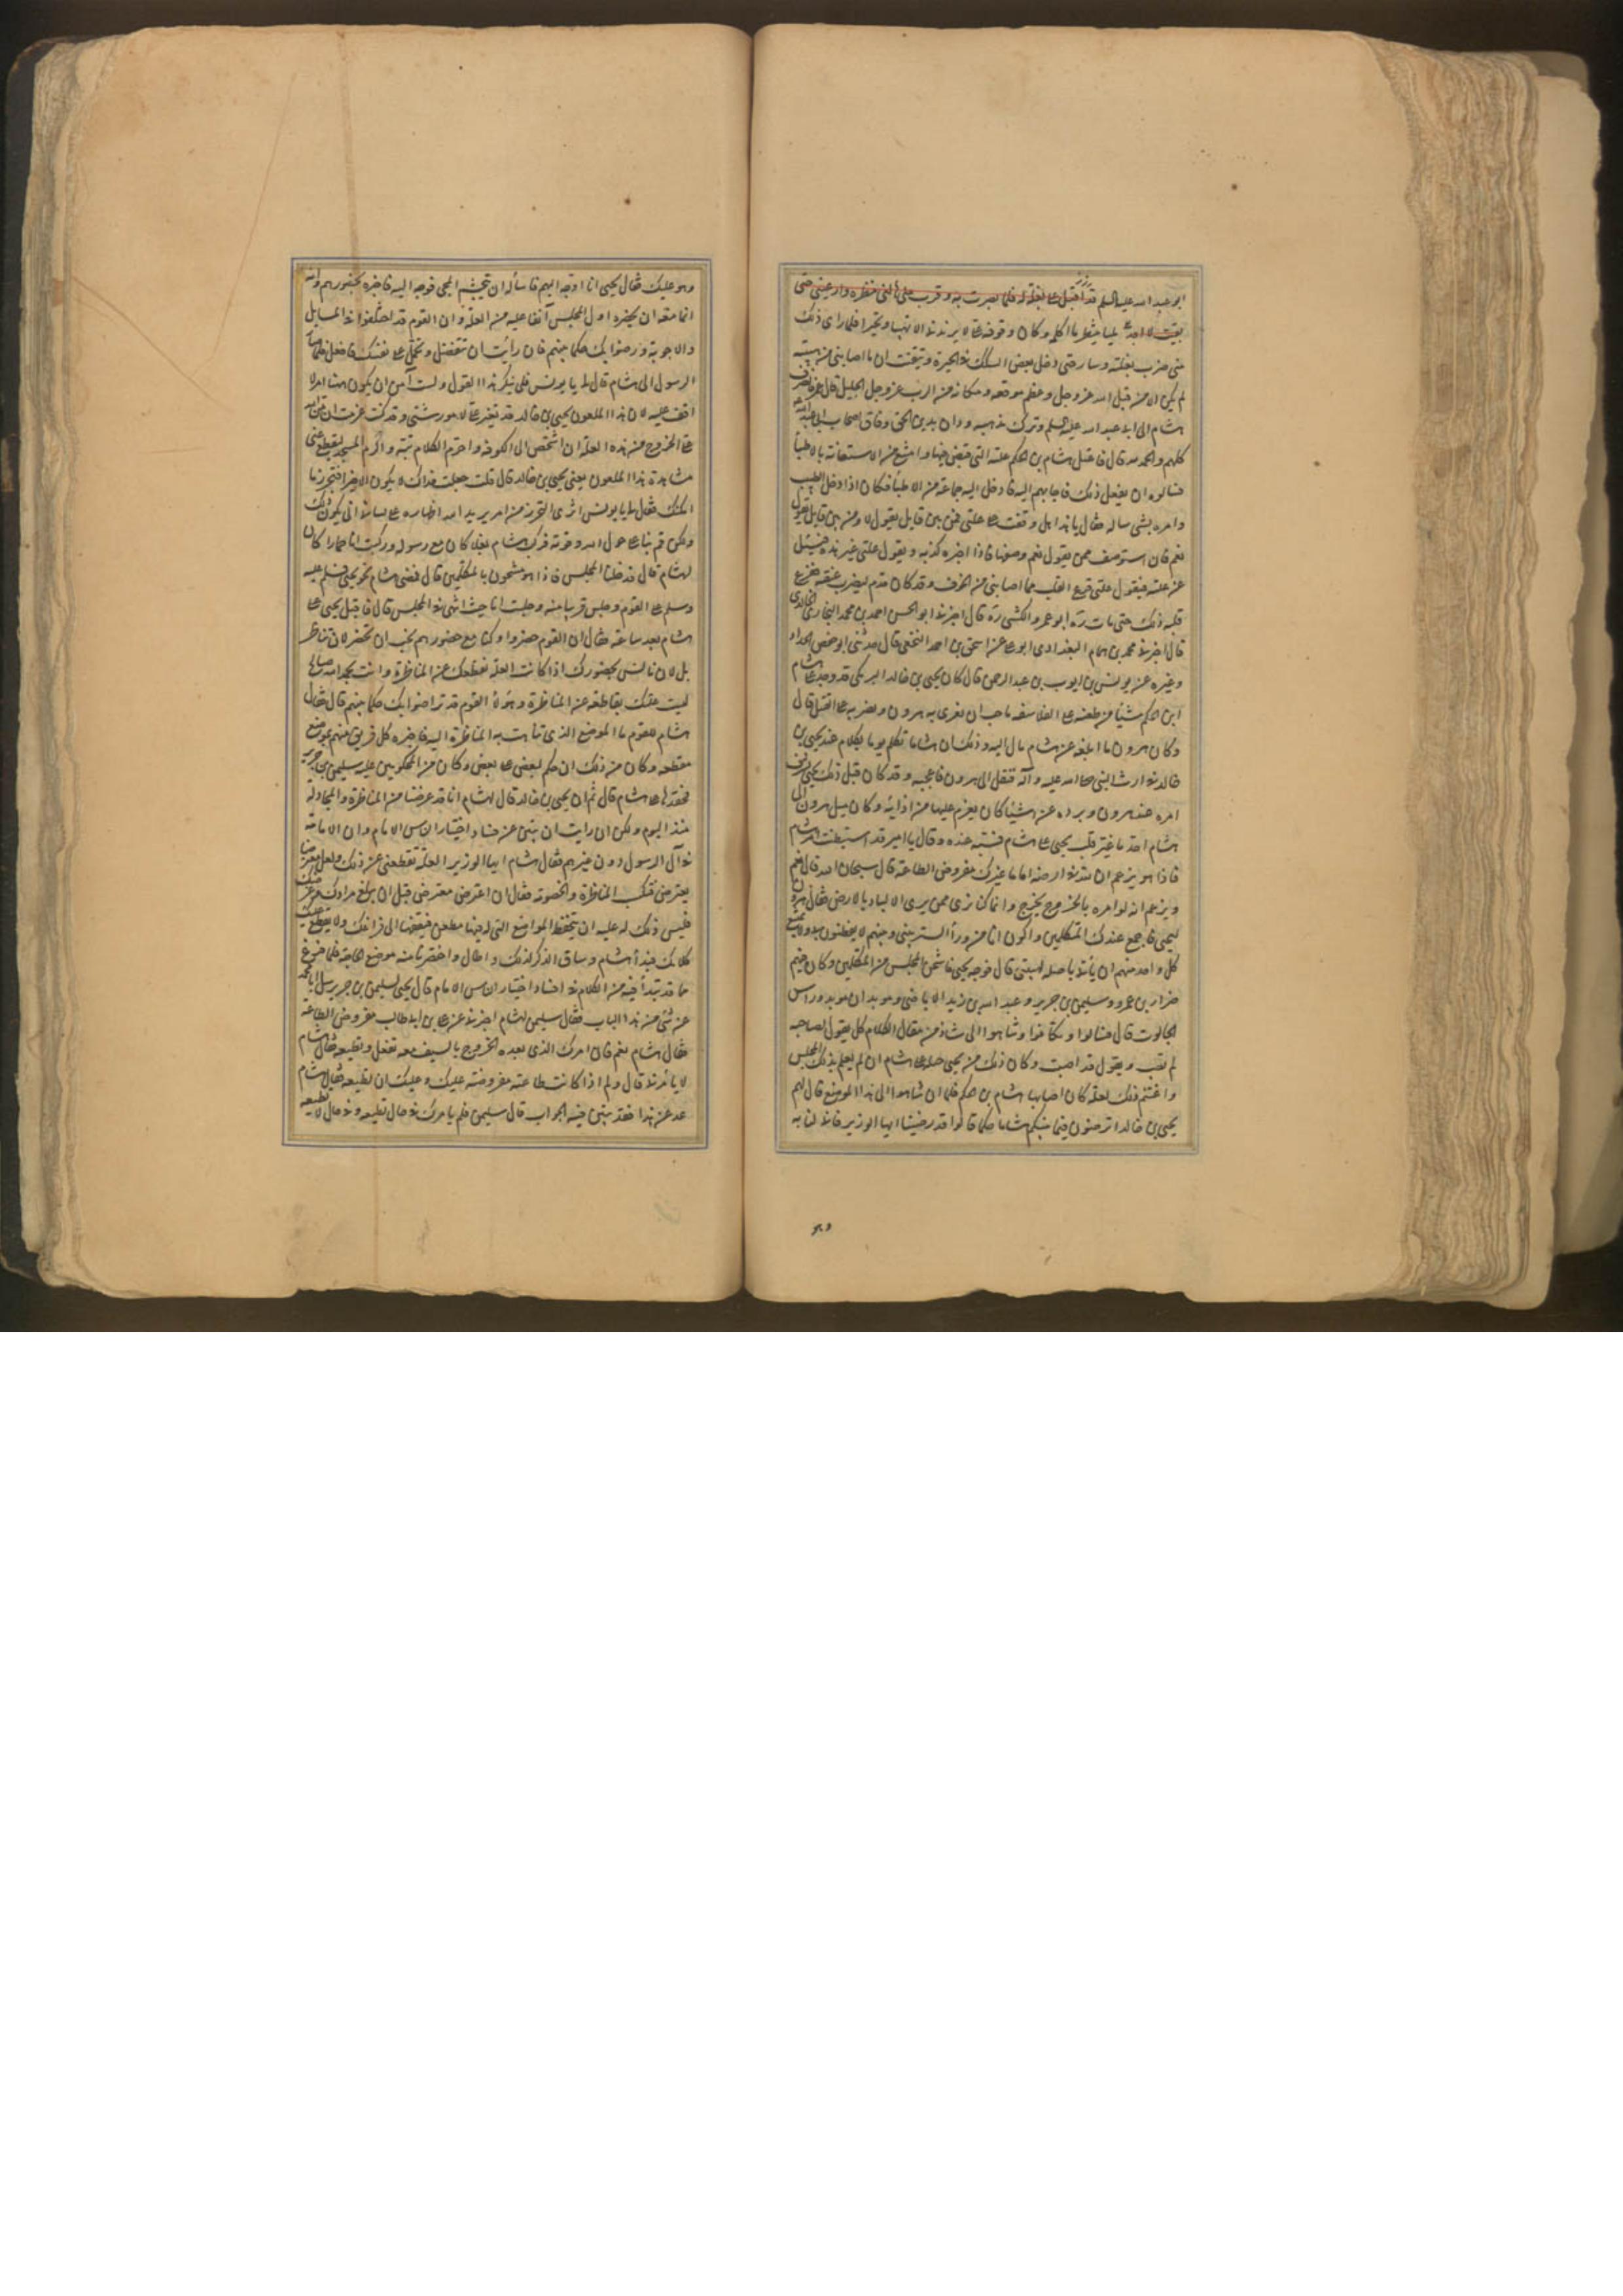 ابو عبد الله عليه السلم قد اقبل على بغلة له فلما بصرت به وقرب منى هالنى منظره وارعبنى حتى
بقيت لا اجد شيئا اتفوه به ولا انطلق لسانى لما اردت
حتى ضرب بغلته وسار حتى دخل بعض السكك فى الحيرة وتيقنت ان ما اصابنى من هيبته
لم يكن الا من قبل الله عز وجل وعظم موقعه ومكانه من الرب عز وجل الجليل قال عمر فانصرف
هشام الى ابى عبد الله عليه السلم وترك مذهبه ودان بدين الحق وفاق اصحاب ابى عبد الله
كلهم والحمد لله قال فاعتل هشام بن الحكم علته التى قبض فيها وامتنع من الاستعانة بالاطبا
فسالوه ان يفعل ذلك فاجابهم اليه فادخل اليه جماعة من الاطبا فكان اذا دخل الطبيب
وامره بشى ساله فقال يا هذا هل وقفت على علتى فمن بين قايل يقول لا ومن بين قايل يقول
نعم فان استوصف ممن يقول نعم وصفها فاذا اخبره كذبه ويقول علتى غير هذه فيسئل
عن علته فيقول علتى قرح القلب مما اصابنى من الخوف وقد كان قدم ليضرب عنقه ففزع
قلبه ذلك حتى مات ره ابو عمرو الكشى ره قال اخبرنى ابو الحسن احمد بن محمد الخالدى
قال اخبرنى محمد بن همام البغدادى ابو على عن اسحق بن احمد النخعى قال حدثنى ابو حفص الحداد
وغيره عن يونس بن عبد الرحمن قال كان يحيى بن خالد البرمكى قد وجد على هشام
ابن الحكم شيئا من طعنه على الفلاسفه واحب ان يغرى به هرون ويضربه على القتل قال
وكان هرون لما بلغه عن هشام مال اليه وذلك ان هشاما تكلم يوما بكلام عند يحيى بن
خالد فى ارث النبى صلى الله عليه وآله فنقل الى هرون فاعجبه وقد كان قبل ذلك يحيى يشرف
امره عند هرون ويرده عن اشيا كان يعزم عليها من اذائه وكان ميل هرون الى
هشام احد ما غير قلب يحيى على هشام فشيبه عنده وقال يا امير قد استبطنت امر هشام
فاذا هو يزعم ان لله فى ارضه اماما غيرك مفروض الطاعة قال سبحان الله قال نعم
ويزعم انه لو امره بالخروج لخرج وانما كنا نرى ممن يرى الالباد بالارض فقال هرون
ليحيى فاجمع عندك المتكلمين واكون انا من ورا الستر بينى وبينهم لا يفطنون بى ولا يمتنع
كل واحد منهم ان ياتى باصله لهيبتى قال فوجه يحيى فاشحن المجلس من المتكلمين وكان فيهم
ضرار بن عمرو وسليمن بن جرير وعبد الله بن زيد الاباضى وموبدان موبد وراس
الجالوت قال فسالوا وتكافوا وتناهوا الى شاذ من مقال الكلام كل يقول لصاحبه
لم تجب ويقول قد اجبت وكان ذلك من يحيى حيلة على هشام ان لم يعلم بذلك المجلس
واغتنم ذلك لعلة كان اصابها هشام بن الحكم فلما ان تناهوا الى هذا الموضع قال لهم
يحيى بن خالد اترضون فيما بينكم هشاما حكما قالوا قد رضينا ايها الوزير فانى لنا به
وهو
وهو عليك فقال يحيى انا اوجه اليهم فاساله ان يتجشم المجى فوجه اليه فاخبره بحضورهم وانه
انما منعه ان يحضره اول المجلس ابقا عليه من العلة وان القوم قد اختلفوا فى المسايل
والاجوبة ورضوا بك حكما بينهم فان رايت ان تتفضل وتحمل على نفسك فافعل فلما صار
الرسول الى هشام قال لى يا يونس قلبى ينكر هذا القول ولست آمن ان يكون هيهنا امر لا
اقف عليه لان هذا الملعون يحيى بن خالد قد تغير على لامور شتى وقد كنت عزمت ان من الله
على بالخروج من هذه العلة ان اشخص الى الكوفة واحرم الكلام بتة والزم المسجد ليقطع عنى
مشاهدة هذا الملعون يعنى يحيى بن خالد قال قلت جعلت فداك لا يكون الا خيرا فتحرز ما
امكنك فقال لى يا يونس اترى التحرز من امر يريد الله اظهاره على لسانى انى يكون ذلك
ولكن قم بنا على حول الله وقوته فركب هشام بغلا كان مع رسوله وركبت انا حمارا كان
لهشام قال فدخلنا المجلس فاذا هو مشحون بالمتكلمين قال فمضى هشام نحو يحيى فسلم عليه
وسلم على القوم وجلس قريبا منه وجلست انا حيث انتهى بى المجلس قال فاقبل يحيى على
هشام بعد ساعة فقال ان القوم حضروا وكنا مع حضورهم نحب ان تحضر لا لان تناظر
بل لان نانس بحضورك اذا كانت العلة تقطعك عن المناظرة وانت بحمد الله صالح
ليست علتك بقاطعة عن المناظرة وهؤلا القوم قد تراضوا بك حكما بينهم قال فقال
هشام للقوم ما الموضع الذى تناهت به المناظرة اليه فاخبره كل فريق منهم بموضع
مقطعه وكان من ذلك ان حكم لبعض على بعض وكان من المحكومين عليه سليمن بن جرير
فحقدها على هشام قال ثم ان يحيى بن خالد قال لهشام انا قد عرضنا من المناظرة والمجادلة
منذ اليوم ولكن ان رايت ان تبين عن فساد اختيار الناس الامام وان الامامة
فى آل الرسول دون غيرهم فقال هشام ايها الوزير العلة تقطعنى عن ذلك ولعل معترضا
يعترض فيكتسب المناظرة والخصومة فقال ان اعترض معترض قبل ان تبلغ مرادك وغرضك
فليس ذلك له عليه ان يتحفظ المواضع التى له فيها مطعن فيقفها الى فراغك ولا يقطع عليك
كلامك فبدا هشام وساق الذكر لذلك واطال واختصرنا منه موضع الحاجة فلما فرغ
مما قد ابتدا فيه من الكلام فى افساد اختيار الناس الامام قال يحيى لسليمن بن جرير سل ابا محمد
عن شى من هذا الباب فقال سليمن لهشام اخبرنى عن على بن ابى طالب مفروض الطاعة
فقال هشام نعم قال فان امرك الذى بعده بالخروج بالسيف معه تفعل وتطيعه فقال هشام
لا يامرنى قال ولم اذا كانت طاعته مفروضة عليك وعليك ان تطيعه فقال هشام
عد عن هذا فقد تبين فيه الجواب قال سليمن فلم يامرك فى حال تطيعه وفى حال لا تطيعه